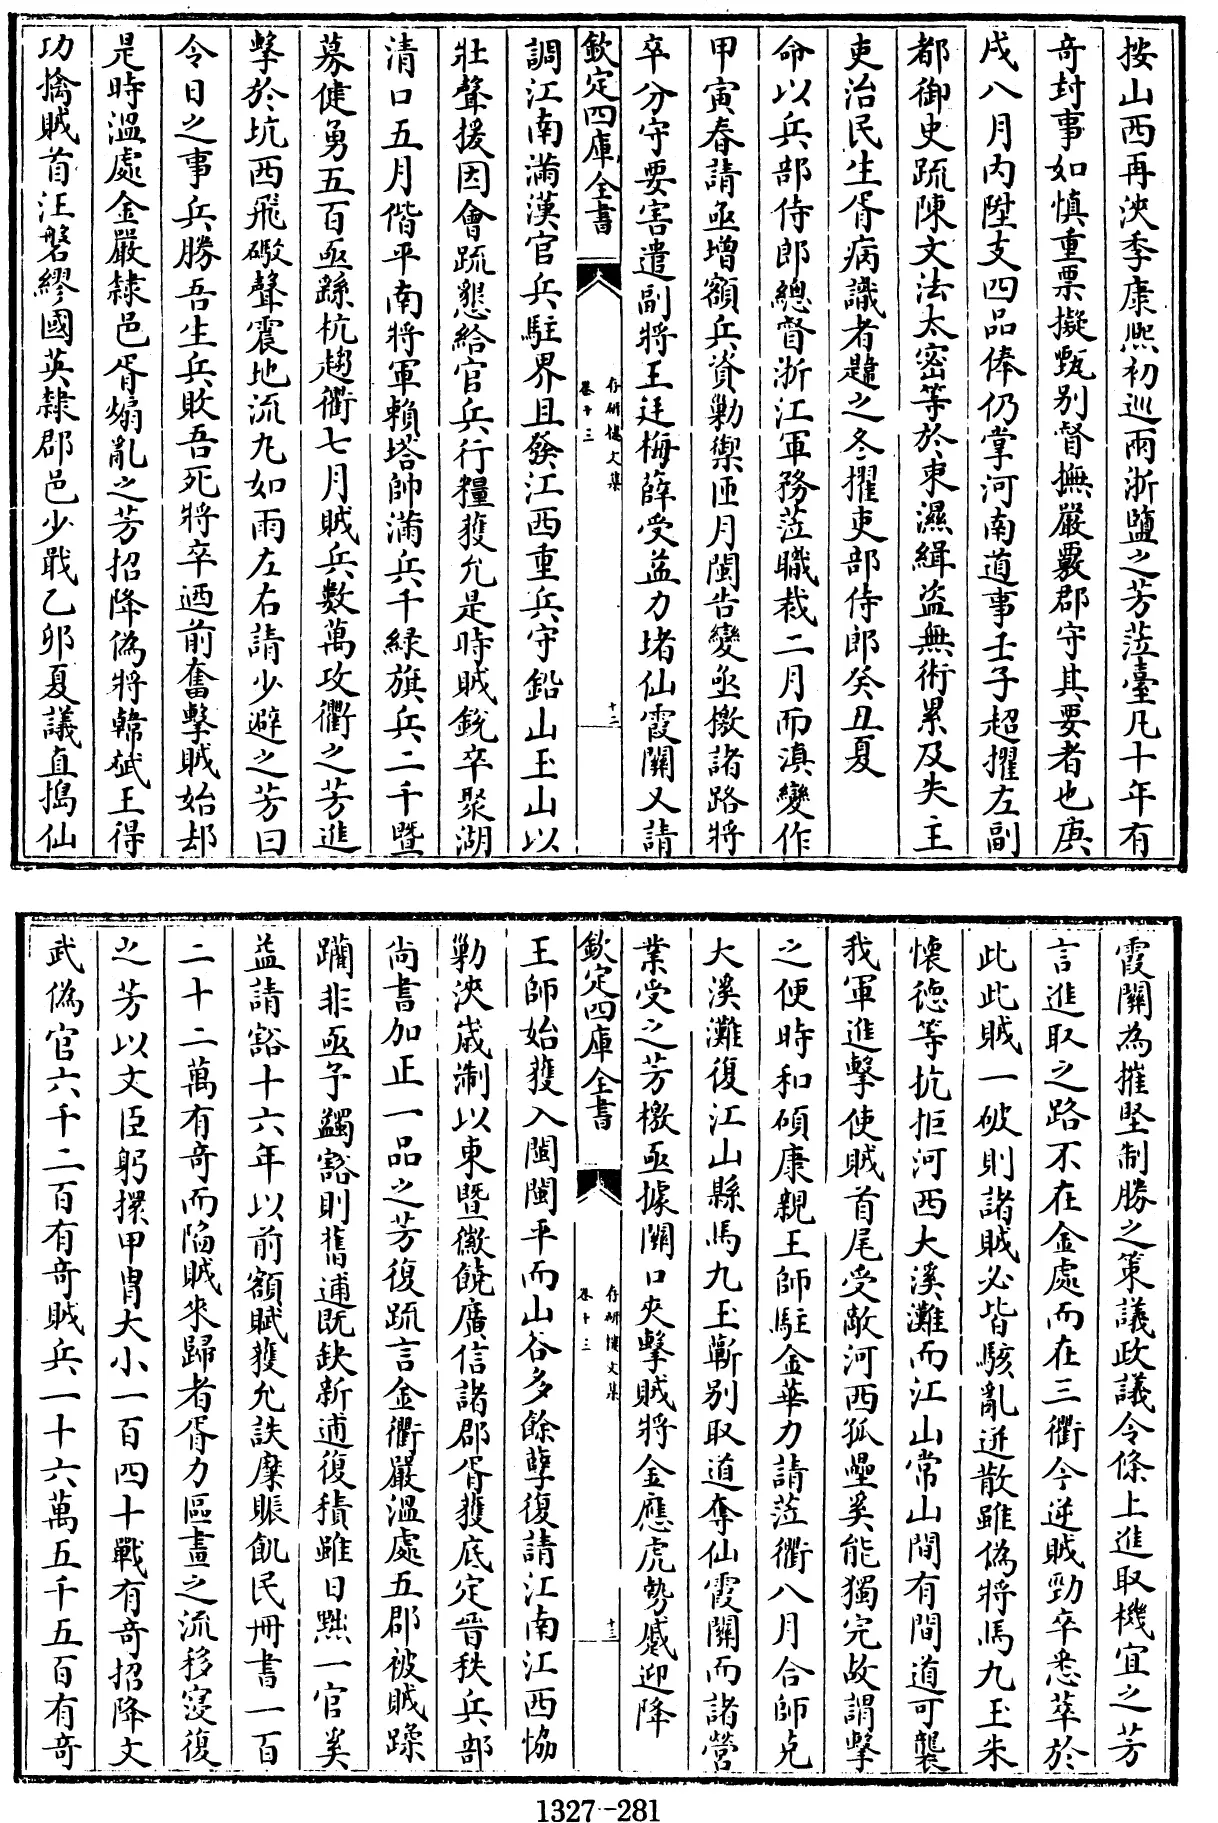 按山西再浹季康熙初巡兩浙鹽之芳蒞臺凡十年有
奇封事如慎重票擬甄别督撫嚴覈郡守其要者也庚
戌八月内陞支四品俸仍掌河南道事壬子超擢左副
都御史疏陳文法太密等於束濕緝盗無術累及失主
吏治民生胥病識者韙之冬擢吏部侍郎癸丑夏
命以兵部侍郎總督浙江軍務蒞職裁二月而滇變作
甲寅春請亟增額兵資勦禦匝月閩告變亟檄諸路將
卒分守要害遣副將王廷梅薛受益力堵仙霞關又請
欽定四庫全書
存研樓文集
卷十三
十二
調江南滿漢官兵駐界且發江西重兵守鉛山玉山以
壯聲援因會疏懇給官兵行糧獲允是時賊銳卒聚湖
清口五月偕平南將軍賴塔帥滿兵千緑旗兵二千暨
募健勇五百亟繇杭趨衢七月賊兵數萬攻衢之芳進
擊於坑西飛礮聲震地流丸如雨左右請少避之芳曰
今日之事兵勝吾生兵敗吾死將卒迺前奮擊賊始却
是時溫處金嚴隸邑胥煽亂之芳招降偽將韓斌王得
功擒賊首汪磐繆國英隸郡邑少戢乙卯夏議直搗仙
霞關為摧堅制勝之策議政議令條上進取機宜之芳
言進取之路不在金處而在三衢今逆賊勁卒悉萃於
此此賊一破則諸賊必皆駭亂迸散雖偽將馬九玉朱
懷德等抗拒河西大溪灘而江山常山間有間道可襲
我軍進擊使賊首尾受敵河西孤壘奚能獨完故謂擊
之便時和碩康親王師駐金華力請蒞衢八月合師克
大溪灘復江山縣馬九玉蕲别取道奪仙霞關而諸營
業受之芳檄亟據關口夾擊賊將金應虎勢蹙迎降
欽定四庫全書
存研樓文集
卷十三
十三
王師始獲入閩閩平而山谷多餘孽復請江南江西恊
勦浹歲淛以東暨徽饒廣信諸郡胥獲底定晉秩兵部
尚書加正一品之芳復疏言金衢嚴溫處五郡被賊蹂
躪非亟予蠲豁則舊逋既缺新逋復積雖日黜一官奚
益請豁十六年以前額賦獲允詄麋賑飢民冊書一百
二十二萬有奇而陷賊來歸者胥力區畫之流移寖復
之芳以文臣躬擐甲胄大小一百四十戰有奇招降文
武偽官六千二百有奇賊兵一十六萬五千五百有奇
1327-281